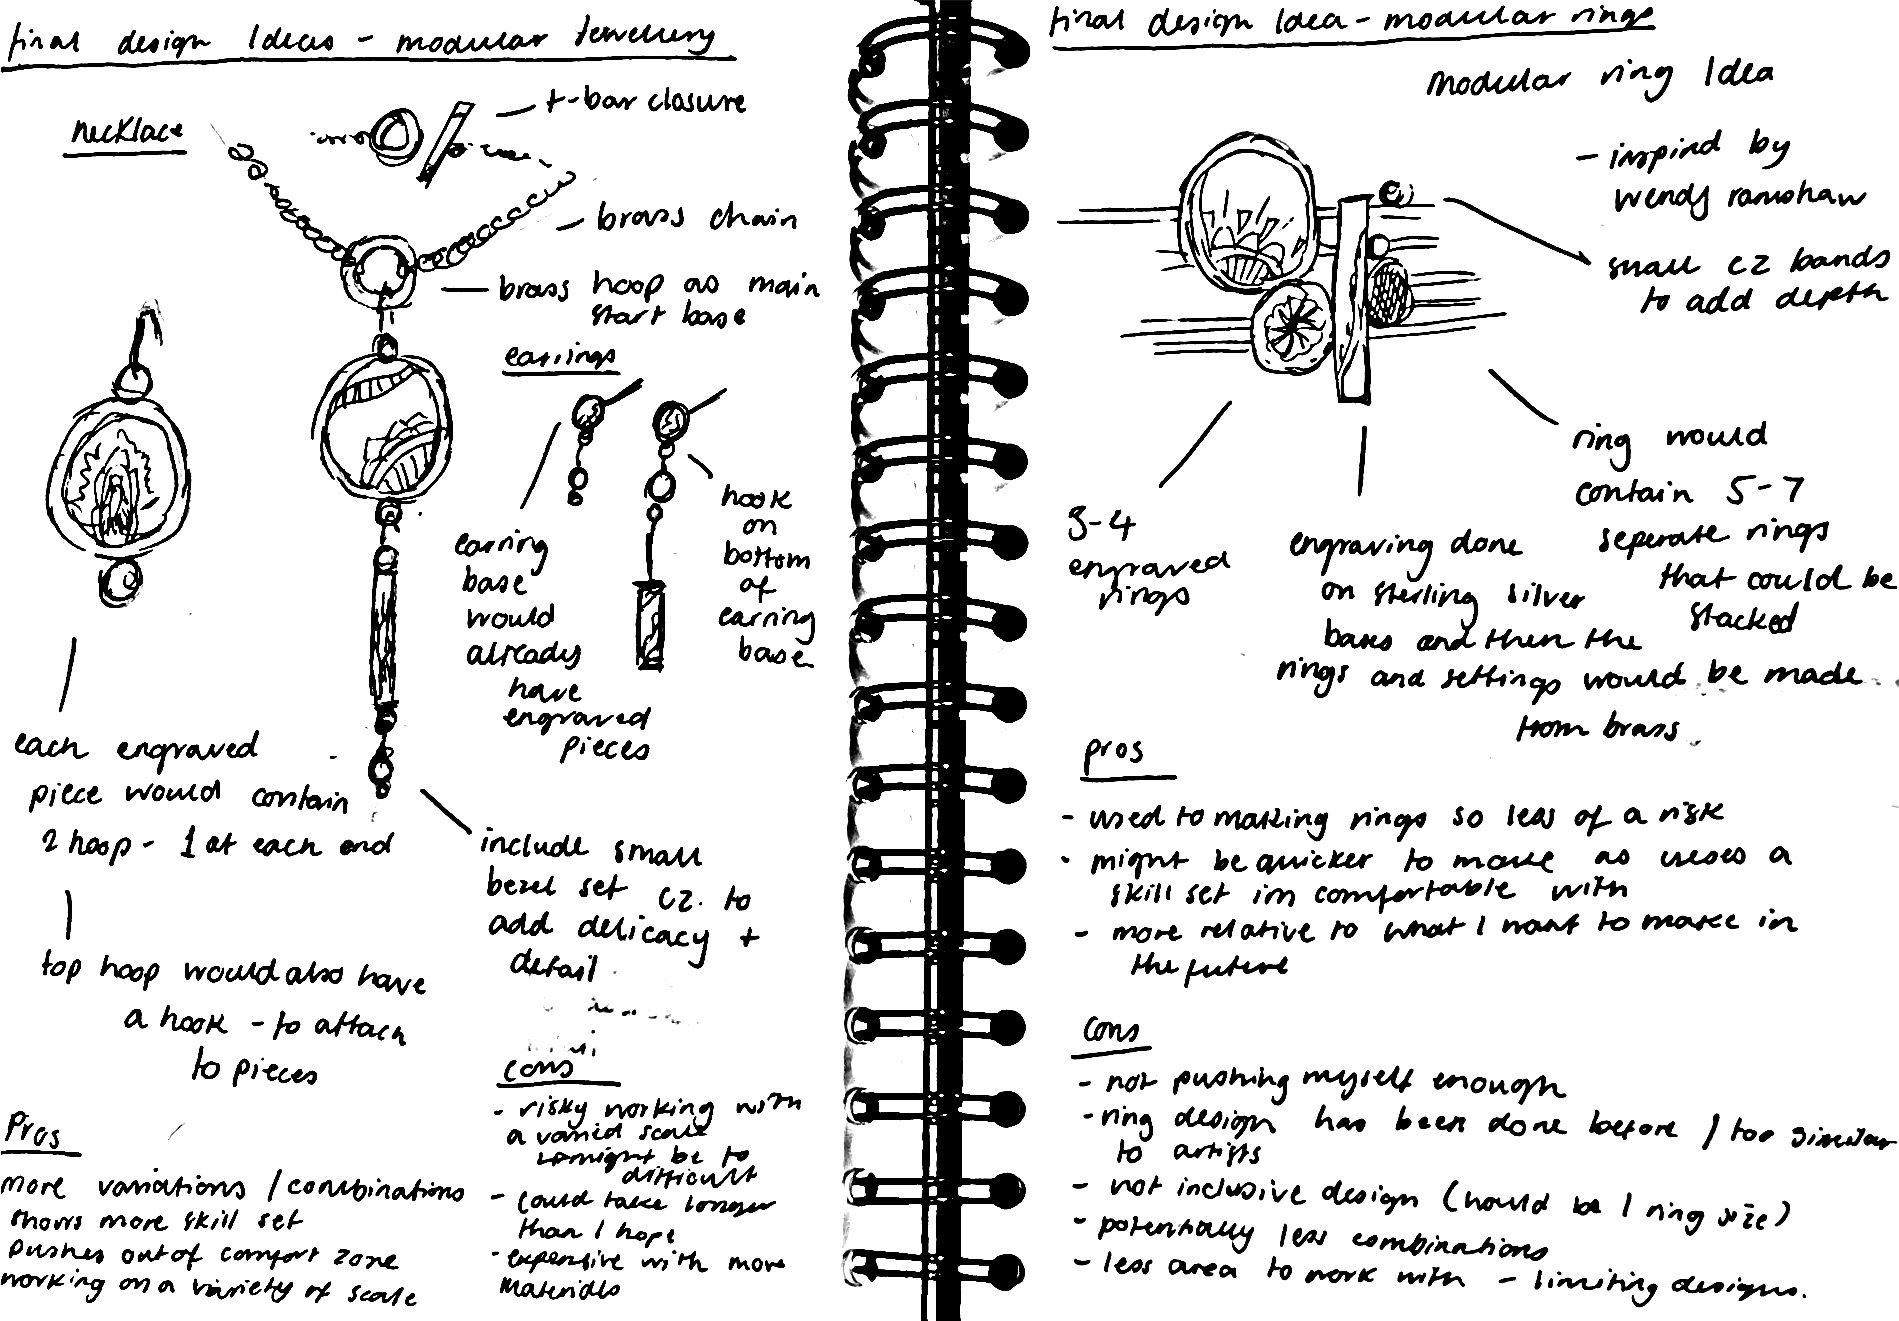 final design Ideas - modular Jewellery
necklace
t-bar closure
brass chain
brass hoop as main
start base
earrings
earring
base
would
already
have
engraved
pieces
hook
on
bottom
of
earring
base
each engraved
piece would contain
2 hoop - 1 at each end
top hoop would also have
a hook - to attach
to pieces
include small
bezel set cz. to
add delicacy +
detail
Pros
more variations / combinations
shows more skill set
pushes out of comfort zone
working on a variety of scale
cons
- risky working with
a varied scale
might be to
difficult
- could take longer
than I hope
- expensive with more
materials
final design Idea - modular rings
modular ring Idea
- inspird by
wendy ramshaw
small cz bands
to add depth
ring would
contain 5-7
seperate rings
that could be
stacked
3-4
engraved
rings
engraving done
on sterling silver
bases and then the
rings and settings would be made
from brass.
pros
- used to making rings so less of a risk
- might be quicker to make as uses a
skill set im comfortable with
- more relative to what I want to make in
the future
cons
- not pushing myself enough
- ring design has been done before / too similar
to artists
- not inclusive design (would be 1 ring size)
- potentially less combinations
- less area to work with - limiting designs.